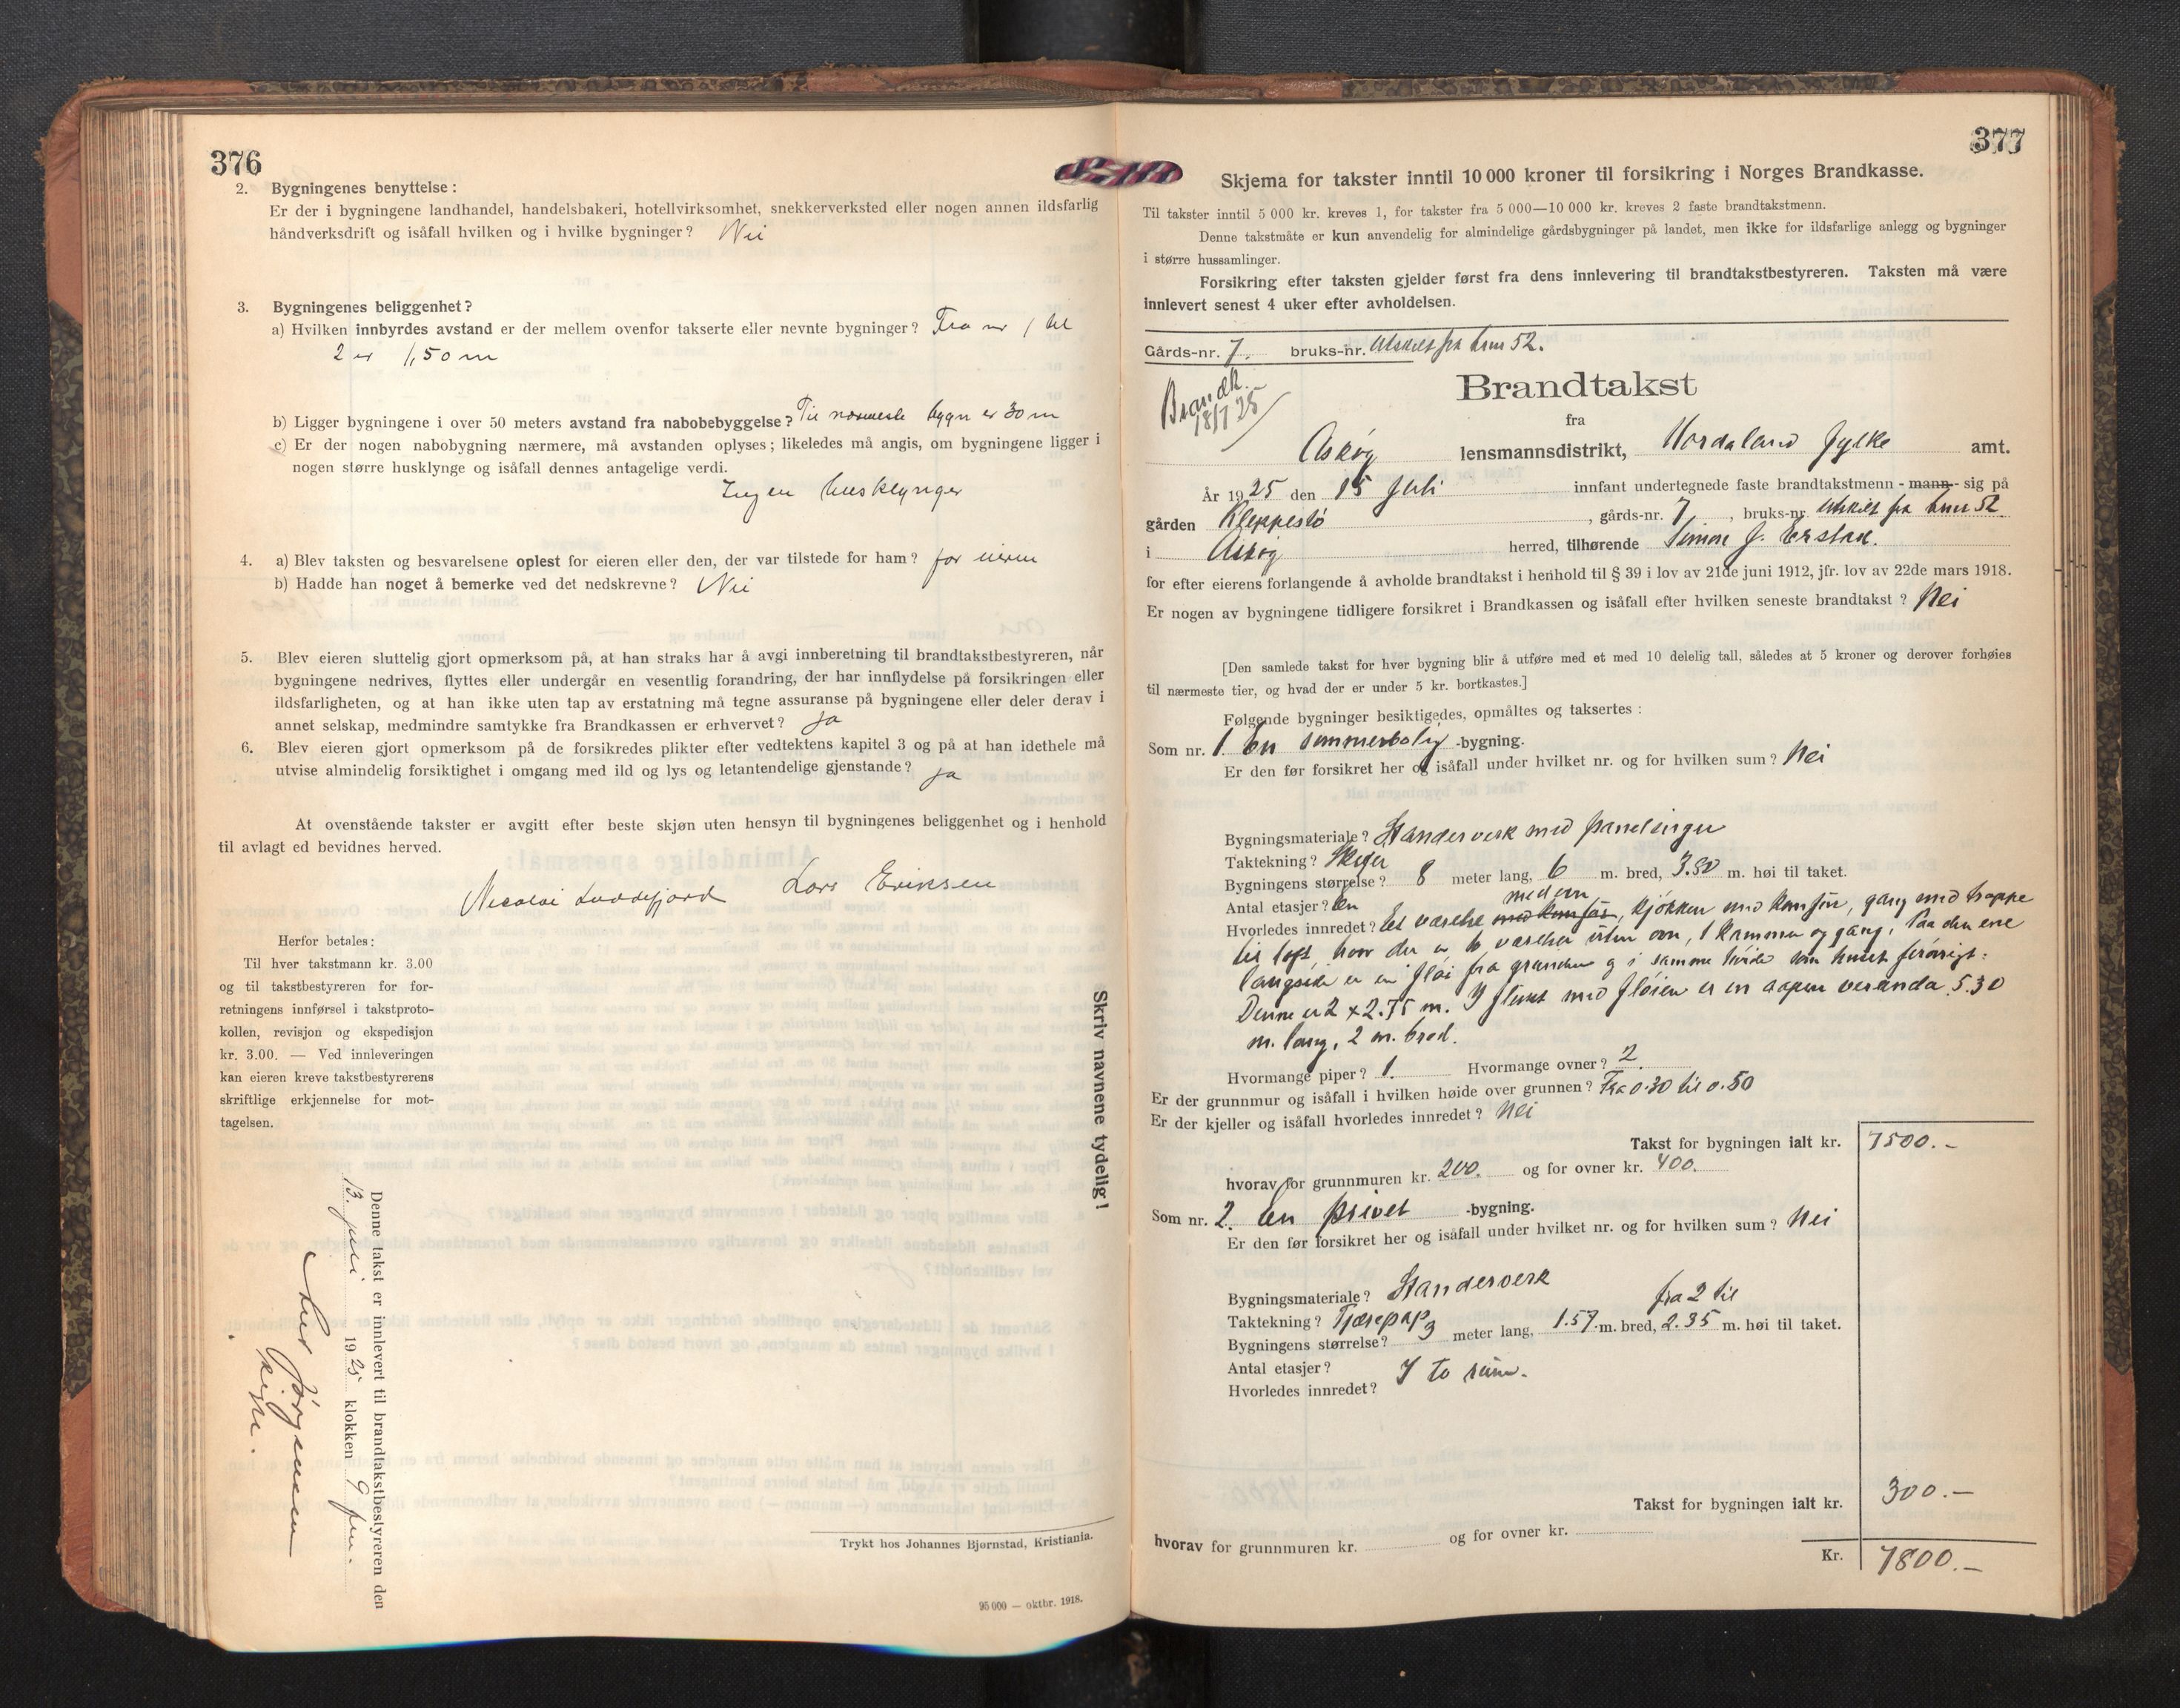 376
2. Bygningenes benyttelse:
Er der i bygningene landhandel, handelsbakeri, hotellvirksomhet, snekkerverksted eller nogen annen ildsfarlig
håndverksdrift og isåfall hvilken og i hvilke bygninger? Nei
3. Bygningenes beliggenhet?
a) Hvilken innbyrdes avstand er der mellem ovenfor takserte eller nevnte bygninger? Fra nr 1 til
2 er 1,50 m
b) Ligger bygningene i over 50 meters avstand fra nabobebyggelse? Til nærmeste bygn er 30 m
c) Er der nogen nabobygning nærmere, må avstanden oplyses; likeledes må angis, om bygningene ligger i
nogen større husklynge og isåfall dennes antagelige verdi.
Ingen husklynger
4. a) Blev taksten og besvarelsene oplest for eieren eller den, der var tilstede for ham? for eieren
b) Hadde han noget å bemerke ved det nedskrevne? Nei
5. Blev eieren sluttelig gjort opmerksom på, at han straks har å avgi innberetning til brandtakstbestyreren, når
bygningene nedrives, flyttes eller undergår en vesentlig forandring, der har innflydelse på forsikringen eller
ildsfarligheten, og at han ikke uten tap av erstatning må tegne assuranse på bygningene eller deler derav i
annet selskap, medmindre samtykke fra Brandkassen er erhvervet? Ja
6. Blev eieren gjort opmerksom på de forsikredes plikter efter vedtektens kapitel 3 og på at han idethele må
utvise almindelig forsiktighet i omgang med ild og lys og letantendelige gjenstande? Ja
At ovenstående takster er avgitt efter beste skjøn uten hensyn til bygningenes beliggenhet og i henhold
til avlagt ed bevidnes herved.
Nicolai Luddefjord Lars Eriksen
Herfor betales:
Til hver takstmann kr. 3.00
og til takstbestyreren for for-
retningens innførsel i takstproto-
kollen, revisjon og ekspedisjon
kr. 3.00. — Ved innleveringen
kan eieren kreve takstbestyrerens
skriftlige erkjennelse for mot-
tagelsen.
Skriv navnene tydelig!
Denne takst er innlevert til brandtakstbestyreren den
13. juli 1925 klokken 9 fm.
Jørgensen
Trykt hos Johannes Bjørnstad, Kristiania.
95 000 — oktbr. 1918.
377
Skjema for takster inntil 10 000 kroner til forsikring i Norges Brandkasse.
Til takster inntil 5 000 kr. kreves 1, for takster fra 5 000—10 000 kr. kreves 2 faste brandtakstmenn.
Denne takstmåte er kun anvendelig for almindelige gårdsbygninger på landet, men ikke for ildsfarlige anlegg og bygninger
i større hussamlinger.
Forsikring efter taksten gjelder først fra dens innlevering til brandtakstbestyreren. Taksten må være
innlevert senest 4 uker efter avholdelsen.
Gårds-nr. 7. bruks-nr. Utskilt fra bnr 52.
Brandk. 18/7 25
Brandtakst
fra
Askøy lensmannsdistrikt, Hordaland fylke amt.
År 1925 den 15 Juli innfant undertegnede faste brandtakstmenn - mann - sig på
gården Kleppestø, gårds-nr. 7, bruks-nr. Utskilt fra bnr 52
i Askøy herred, tilhørende Simon J. Erstad.
for efter eierens forlangende å avholde brandtakst i henhold til § 39 i lov av 21de juni 1912, jfr. lov av 22de mars 1918.
Er nogen av bygningene tidligere forsikret i Brandkassen og isåfall efter hvilken seneste brandtakst? Nei
[Den samlede takst for hver bygning blir å utføre med et med 10 delelig tall, således at 5 kroner og derover forhøies
til nærmeste tier, og hvad der er under 5 kr. bortkastes.]
Følgende bygninger besiktigedes, opmåltes og taksertes:
Som nr. 1. En sommerbolig -bygning.
Er den før forsikret her og isåfall under hvilket nr. og for hvilken sum? Nei
Bygningsmateriale? Standerverk med panelinger
Taktekning? Skifer
Bygningens størrelse? 8 meter lang, 6 m. bred, 3.50 m. høi til taket.
Antal etasjer? En
med ovn
Hvorledes innredet? Et værelse med komfür, kjøkken med komfür, gang med trappe
til loft, hvor der er to værelser uten ovn, 1 kammer og gang. Paa den ene
langside er en fløi fra grunden og i samme höide som huset forövrigt:
Denne er 2 x 2.75 m. I flukt med fløien er en aapen veranda 5.30
m. lang, 2 m. bred.
Hvormange piper? 1. Hvormange ovner? 2
Er der grunnmur og isåfall i hvilken høide over grunnen? Fra 0.30 til 0.50
Er der kjeller og isåfall hvorledes innredet? Nei
Takst for bygningen ialt kr. 7500.-
hvorav for grunnmuren kr. 200. og for ovner kr. 400.
Som nr. 2. En privet -bygning.
Er den før forsikret her og isåfall under hvilket nr. og for hvilken sum? Nei
Bygningsmateriale? Standerverk
Taktekning? Tjærepap fra 2 til
Bygningens størrelse? 3 meter lang, 1.57 m. bred, 2.35 m. høi til taket.
Antal etasjer?
Hvorledes innredet? I to rüm.
Takst for bygningen ialt kr. 300.-
hvorav for grunnmuren kr. og for ovner kr.
Kr. 7800.-